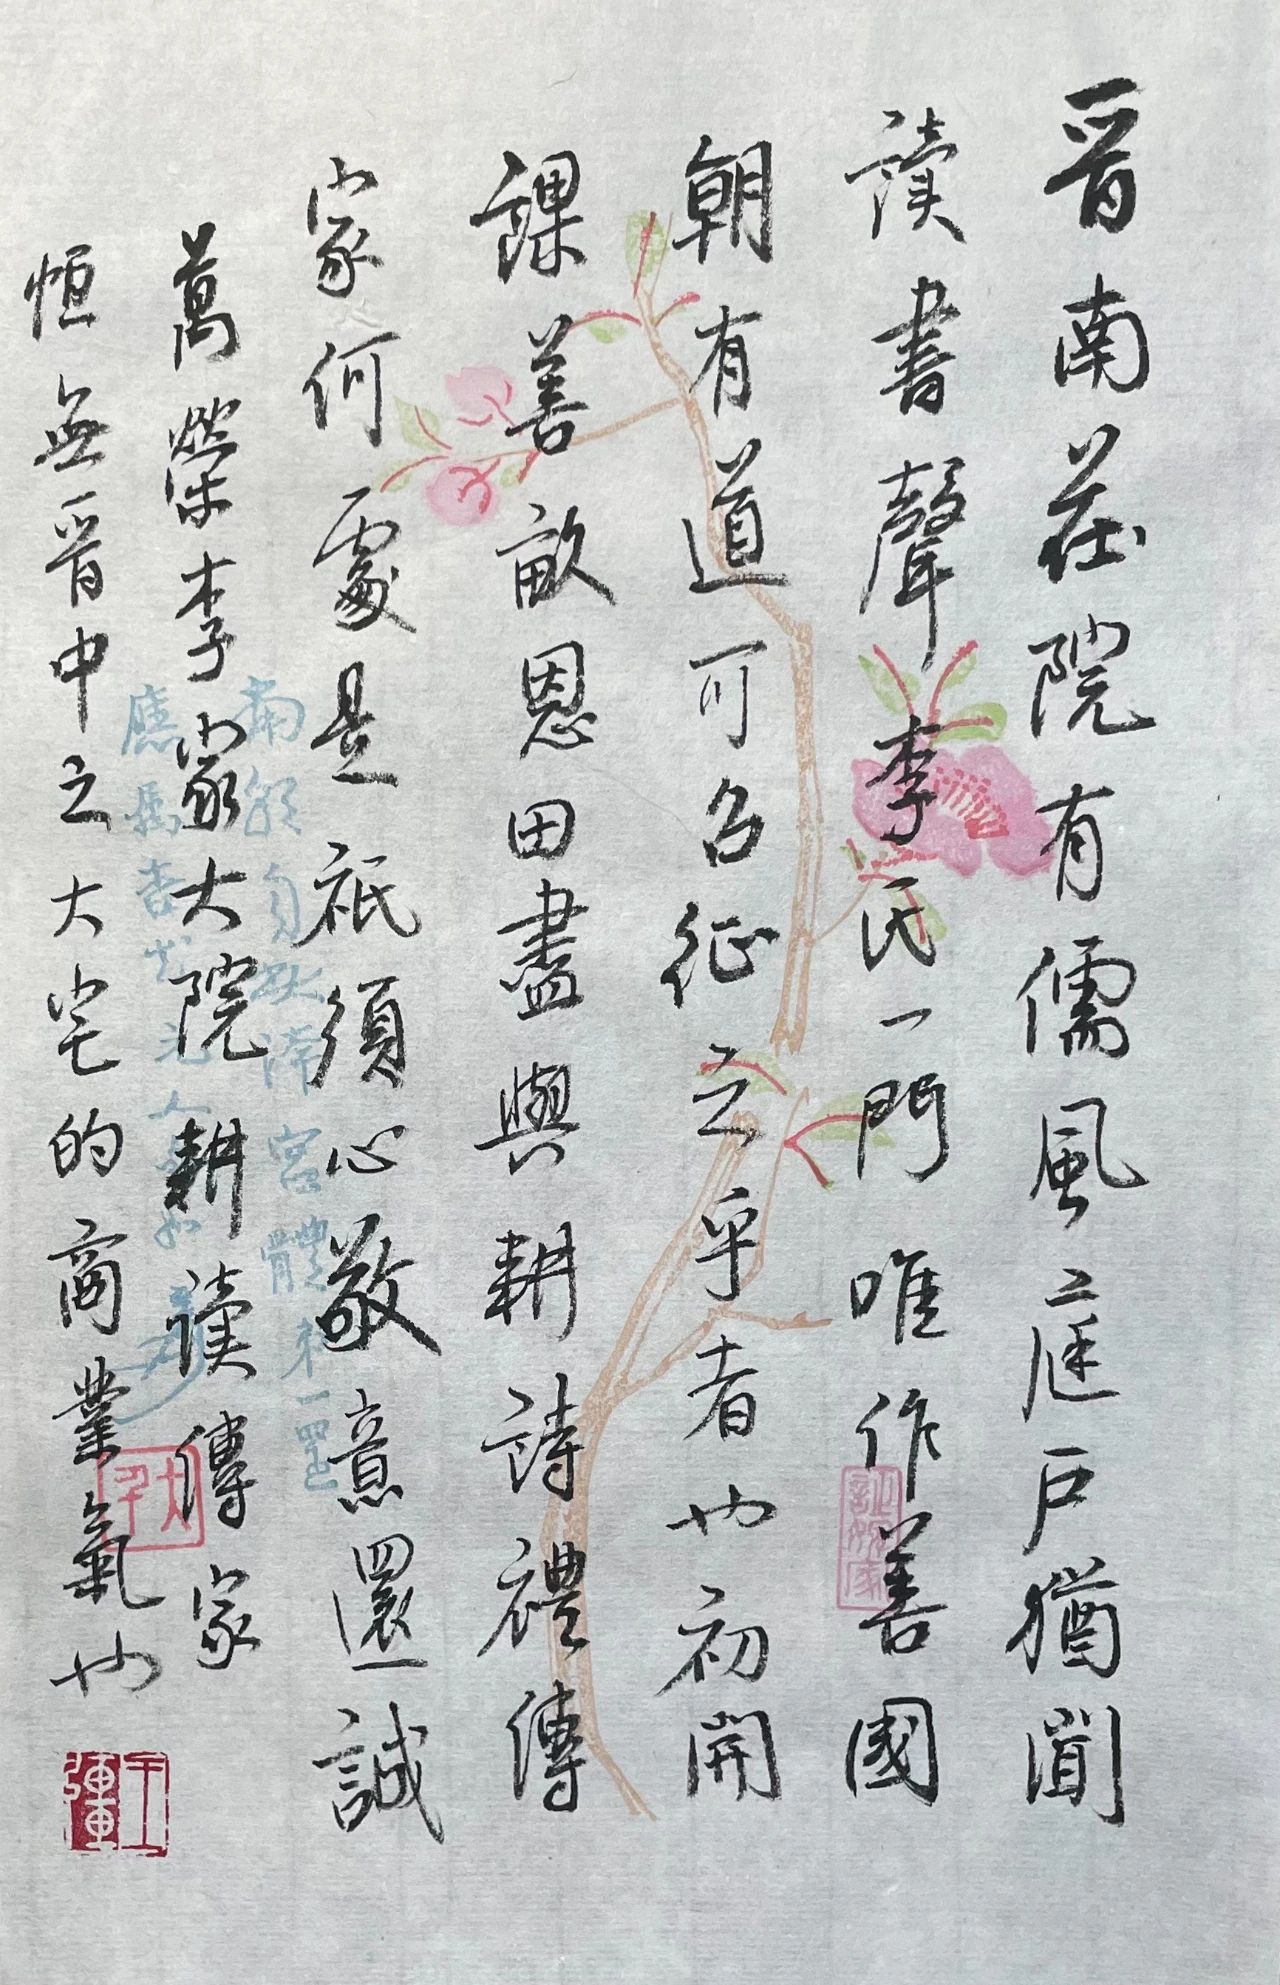 晋南莊院有儒風庭戶猶聞
讀書聲李氏一門唯作善國
朝有道可名征之乎者也初開
課善畝恩田盡與耕詩禮傳
家何處是祇須心敬意還誠
萬榮李家大院耕讀傳家
恒無晋中之大宅的商業氣也